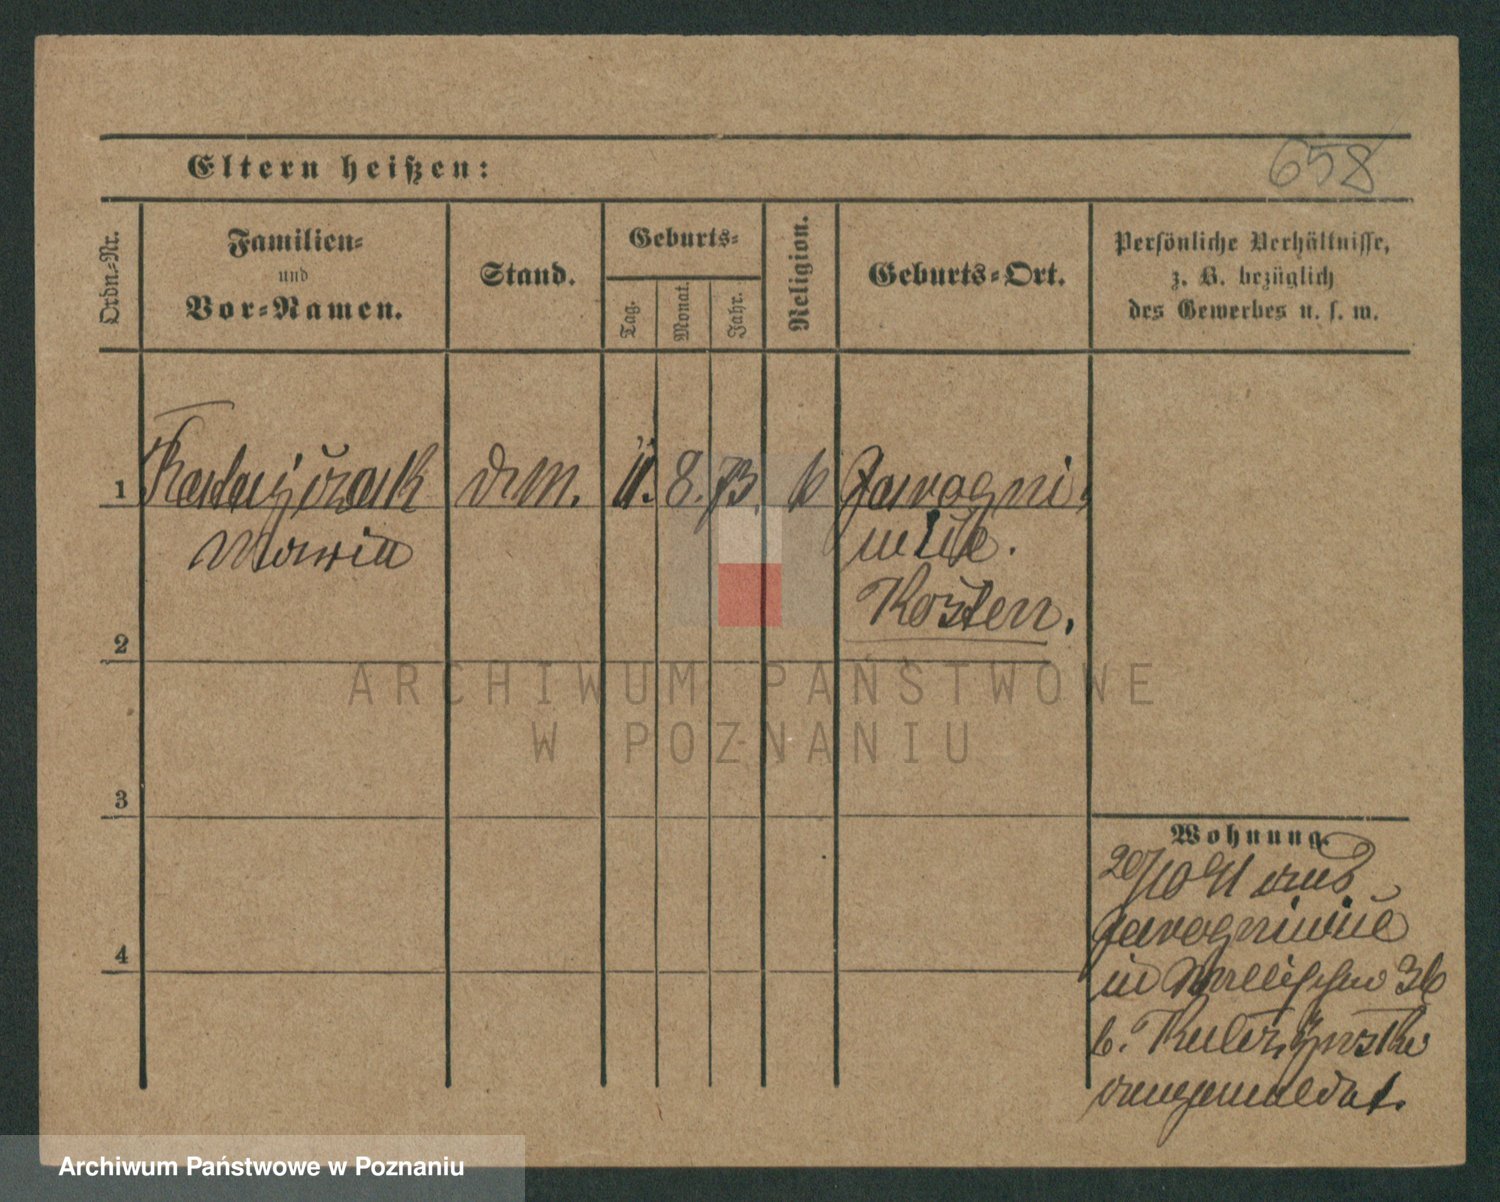 658
Eltern heißen:
Ordn.-Nr.
Familien-
und
Vor-Namen.
Stand.
Geburts-
Tag.
Monat.
Jahr.
Religion.
Geburts-Ort.
Persönliche Verhältnisse,
z. B. bezüglich
des Gewerbes u. s. w.
1
11. 8. 73.
Maria
Kosten.
2
ARCHIWUM PAŃSTWOWE
W POZNANIU
3
Wohnung.
20/10 91 aus
4
in Wallischei 36
b.
angemeldet.
Archiwum Państwowe w Poznaniu